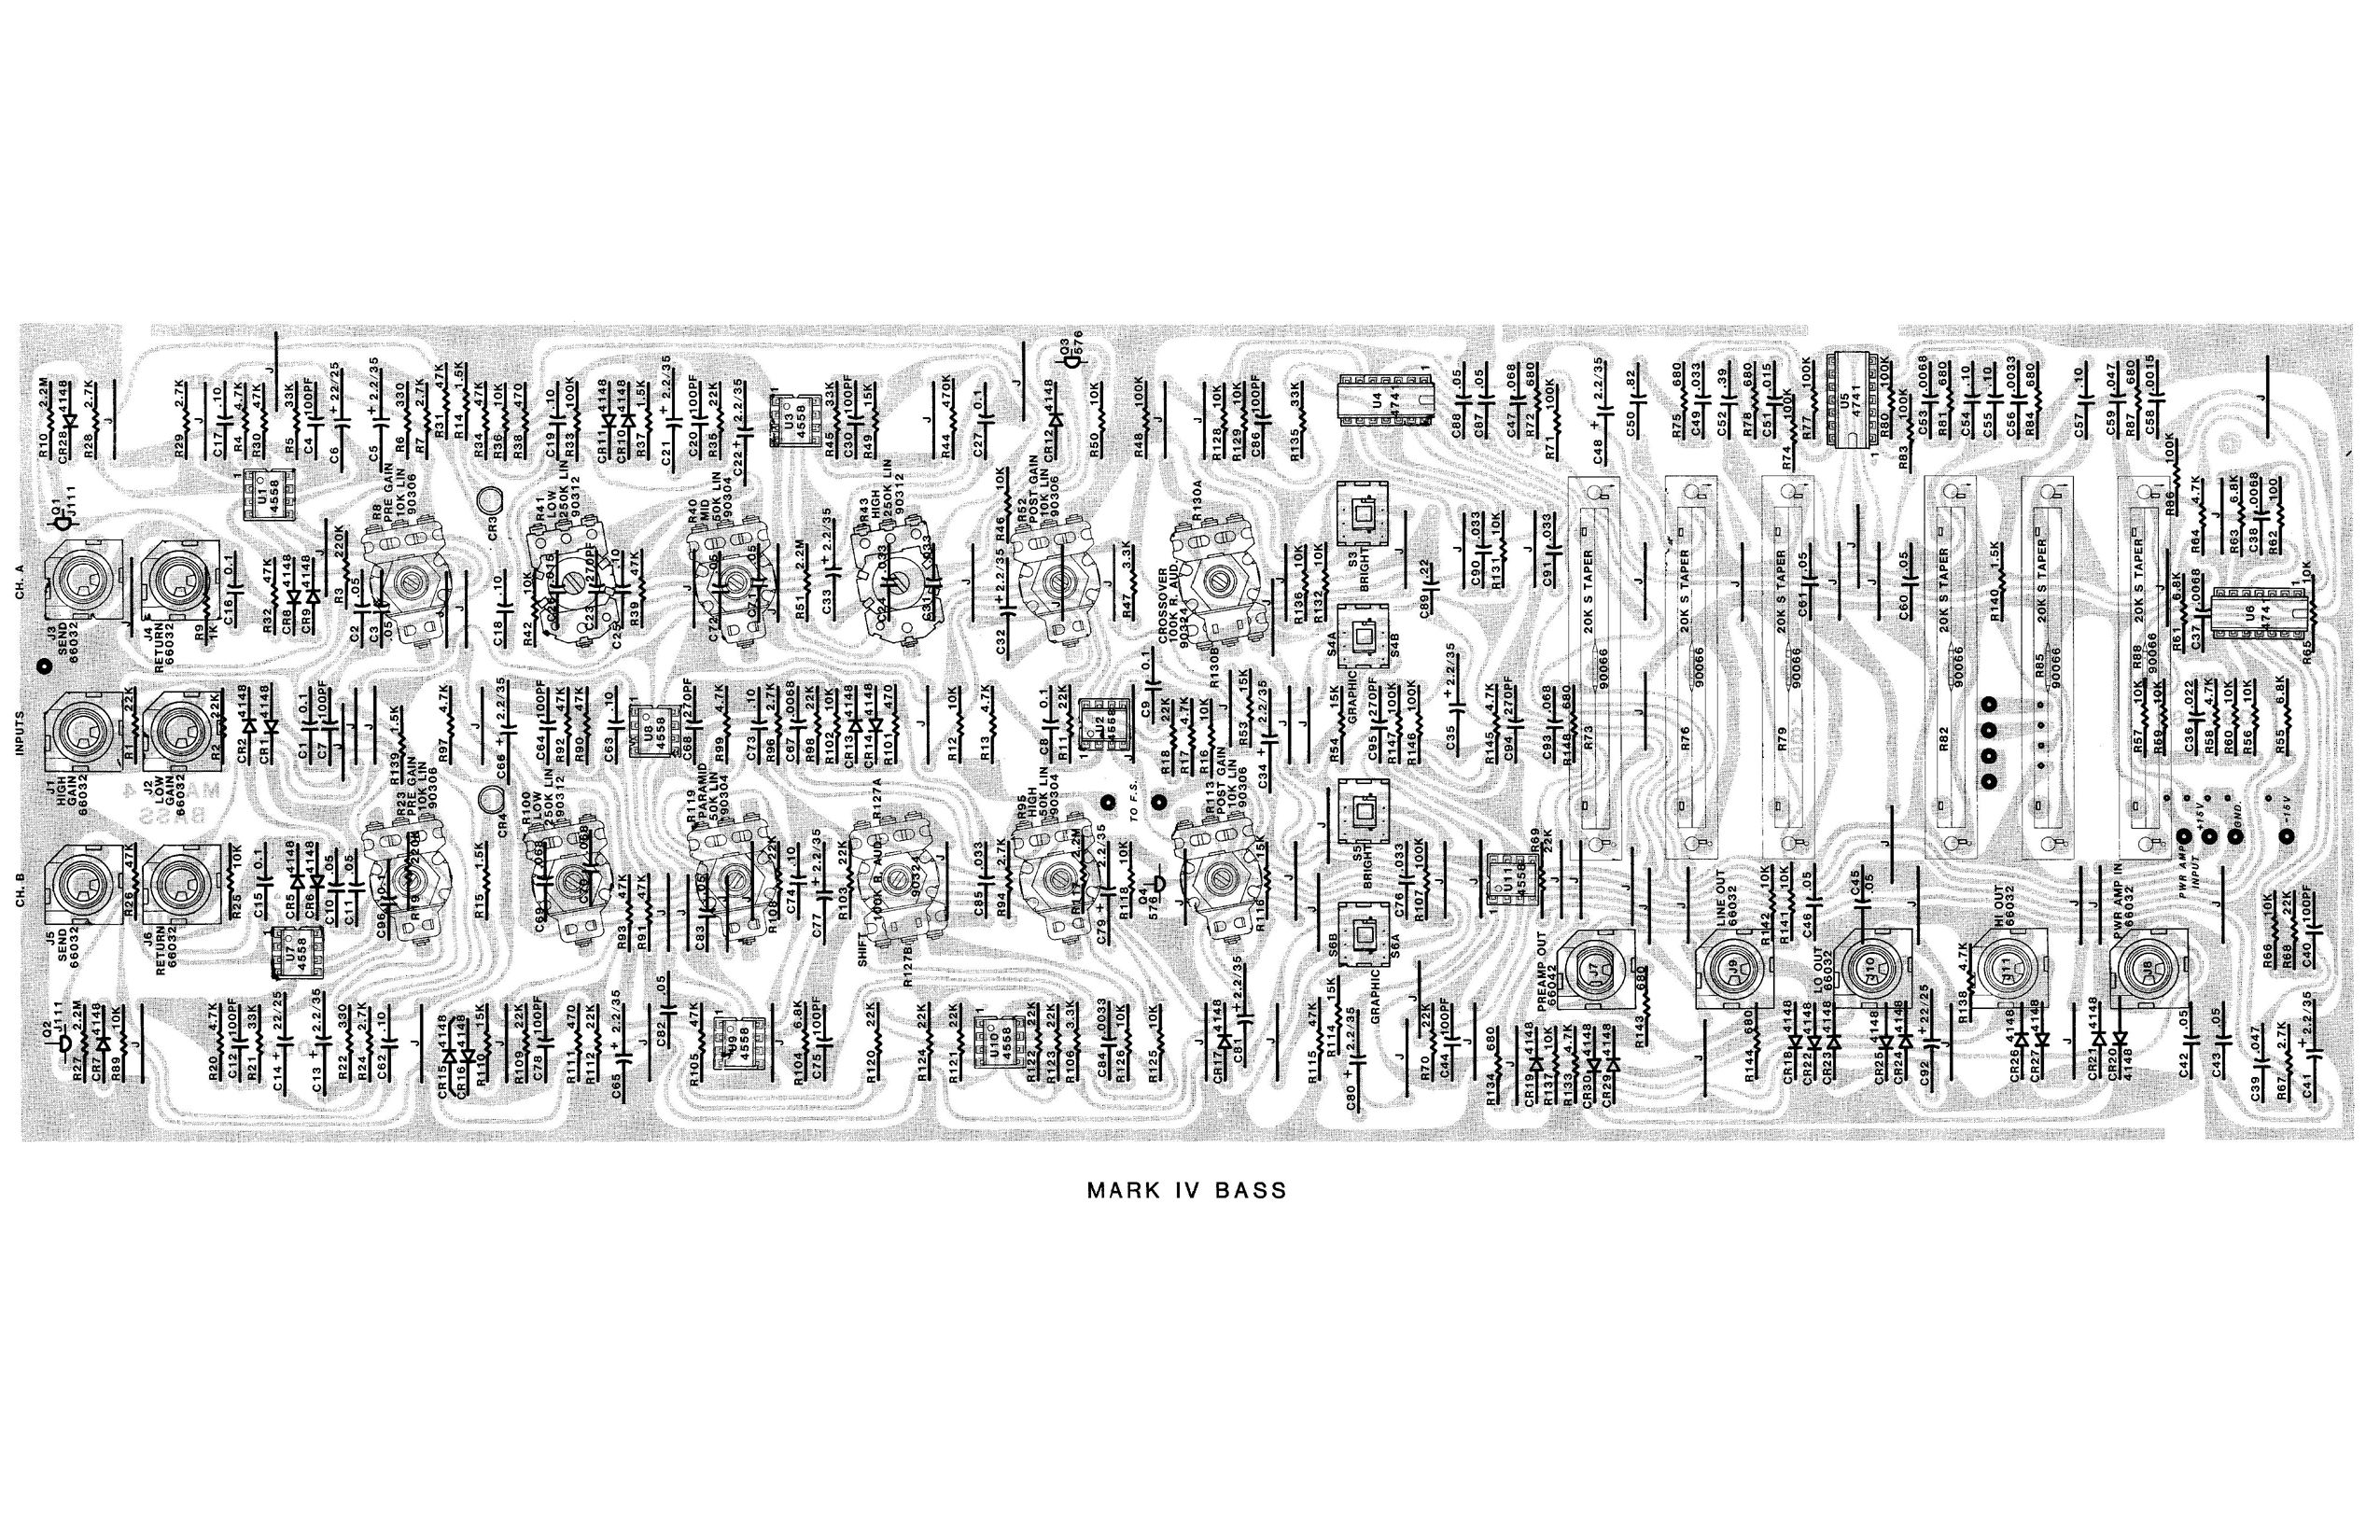 CH. A
INPUTS
CH. B
R10 2.2M
CR28 4148
R28 2.7K
J
R29 2.7K
J
C17 .10
R4 4.7K
R30 47K
J
R5 33K
C4 100PF
C6 + 2.2/25
C5 + 2.2/35
R6 330
R7 2.7K
R31 47K
R14 1.5K
R34 47K
R36 10K
R38 470
C19 .10
R33 100K
CR11 4148
CR10 4148
R37 1.5K
C21 + 2.2/35
C20 100PF
R35 22K
C22 + 2.2/35
U3
4558
1
R45 33K
C30 100PF
R49 15K
J
R44 470K
C27 0.1
J
CR12 4148
Q3
576
R50 10K
R48 100K
J
J
R128 10K
R129 10K
C86 100PF
R135 33K
U4
4741
1
C88 .05
C87 .05
C47 .068
R72 680
R71 100K
C48 + 2.2/35
C50 .82
R75 680
C49 .033
C52 .39
R78 680
C51 .015
R74 100K
R77 100K
U5
4741
1
R80 100K
R83 100K
C53 .0068
R81 680
C54 .10
C55 .10
C56 .0033
R84 680
C57 .10
C59 .047
R87 680
C58 .0015
R86 100K
J
Q1
J111
U1
4558
1
J3
SEND
66032
J4
RETURN
66032
R9
1K
C16 0.1
R32 47K
CR8 4148
CR9 4148
J
R3 220K
C2 .05
C3 .05
R8
PRE GAIN
10K LIN
90306
J
J
CR3
C18 .10
R42 10K
R41
LOW
250K LIN
90312
C26 .015
C23 270PF
C25 .10
R39 47K
R40
MID
50K LIN
90304
C72 .05
C71 .05
R51 2.2M
C33 + 2.2/35
R43
HIGH
250K LIN
90312
C24 .033
C31 .033
J
R46 10K
C32 + 2.2/35
R52
POST GAIN
10K LIN
90306
J
R47 3.3K
CROSSOVER
100K R. AUD.
90324
R130A
R130B
J
R136 10K
R132 10K
S3
BRIGHT
S4A
S4B
GRAPHIC
J
C89 .22
J
C90 .033
R131 10K
J
C91 .033
20K S TAPER
90066
R73
J
20K S TAPER
90066
R76
J
20K S TAPER
90066
R79
C61 .05
J
J
J
C60 .05
20K S TAPER
90066
R82
R140 1.5K
20K S TAPER
R85
90066
20K S TAPER
R88
90066
J
R61 6.8K
C37 .0068
R64 4.7K
J
R63 6.8K
C38 .0068
R62 100
U6
4741
1
R65 10K
J1
HIGH
GAIN
66032
R1 22K
J2
LOW
GAIN
66032
R2 22K
CR2 4148
CR1 4148
C1 0.1
C7 100PF
J
J
J
R139 1.5K
R97 4.7K
J
C66 + 2.2/35
C64 100PF
R92 47K
R90 47K
C63 .10
U8
4558
1
C68 270PF
R99 4.7K
C73 .10
R96 2.7K
C67 .0068
R98 22K
R102 10K
CR13 4148
CR14 4148
R101 470
J
R12 10K
R13 4.7K
C8 0.1
R11 22K
U2
4558
1
J
C9 0.1
R18 22K
R17 4.7K
R16 10K
R53 15K
C34 + 2.2/35
J
J
R54 15K
C95 270PF
R147 100K
R146 100K
C35 + 2.2/35
R145 4.7K
C94 270PF
C93 .068
R148 680
J
R57 10K
R59 10K
C36 .022
R58 4.7K
R60 10K
R56 10K
R55 6.8K
MARK 4
BASS
R23
PRE GAIN
10K LIN
90306
CR4
R100
LOW
250K LIN
90312
R119
PARAMID
50K LIN
90304
R127A
R95
HIGH
50K LIN
90304
TO F.S.
R113
POST GAIN
10K LIN
90306
J
S5
BRIGHT
PWR AMP
INPUT
+15V
GND.
-15V
J5
SEND
66032
R26 47K
J6
RETURN
66032
R25 10K
C15 0.1
CR5 4148
CR6 4148
C10 .05
C11 .05
C96 0.1
R19 220K
R15 1.5K
C69 .068
C70 .068
R93 47K
R91 47K
J
J
C83 .05
J
R108 22K
C74 .10
C77 + 2.2/35
R103 22K
SHIFT
100K R. AUD.
90324
R127B
J
C85 .033
R94 2.7K
R117 2.2M
C79 + 2.2/35
R118 10K
Q4
576
J
R116 15K
J
J
C76 .033
R107 100K
S6B
S6A
GRAPHIC
J
U11
4558
1
R69
22K
J
J
J
PREAMP OUT
66042
J7
R143 680
J
J
LINE OUT
66032
J9
R142 10K
R141 10K
C46 .05
LO OUT
66032
J10
C45
.05
J
J
HI OUT
66032
J11
R138 4.7K
J
J
PWR AMP IN
66032
J8
J
R66 10K
R68 22K
C40 100PF
U7
4558
1
Q2
J111
R27 2.2M
CR7 4148
R89 10K
J
R20 4.7K
C12 100PF
R21 33K
C14 + 22/25
C13 + 2.2/35
R22 330
R24 2.7K
C62 .10
CR15 4148
CR16 4148
R110 15K
J
R109 22K
C78 100PF
R111 470
R112 22K
C65 + 2.2/35
J
C82 .05
R105 47K
U9
4558
R104 6.8K
C75 100PF
R120 22K
R124 22K
R121 22K
U10
4558
1
R122 22K
R123 22K
R106 3.3K
C84 .0033
R126 10K
R125 10K
J
CR17 4148
C81 + 2.2/35
J
R115 47K
R114 15K
C80 + 2.2/35
J
J
R70 22K
C44 100PF
J
R134 680
J
CR19 4148
R137 10K
R133 4.7K
CR30 4148
CR29 4148
J
R144 680
CR18 4148
CR22 4148
CR23 4148
CR25 4148
CR24 4148
C92 + 22/25
J
CR26 4148
CR27 4148
J
CR21 4148
CR20
4148
C42 .05
C43 .05
C39 .047
R67 2.7K
C41 + 2.2/35
MARK IV BASS